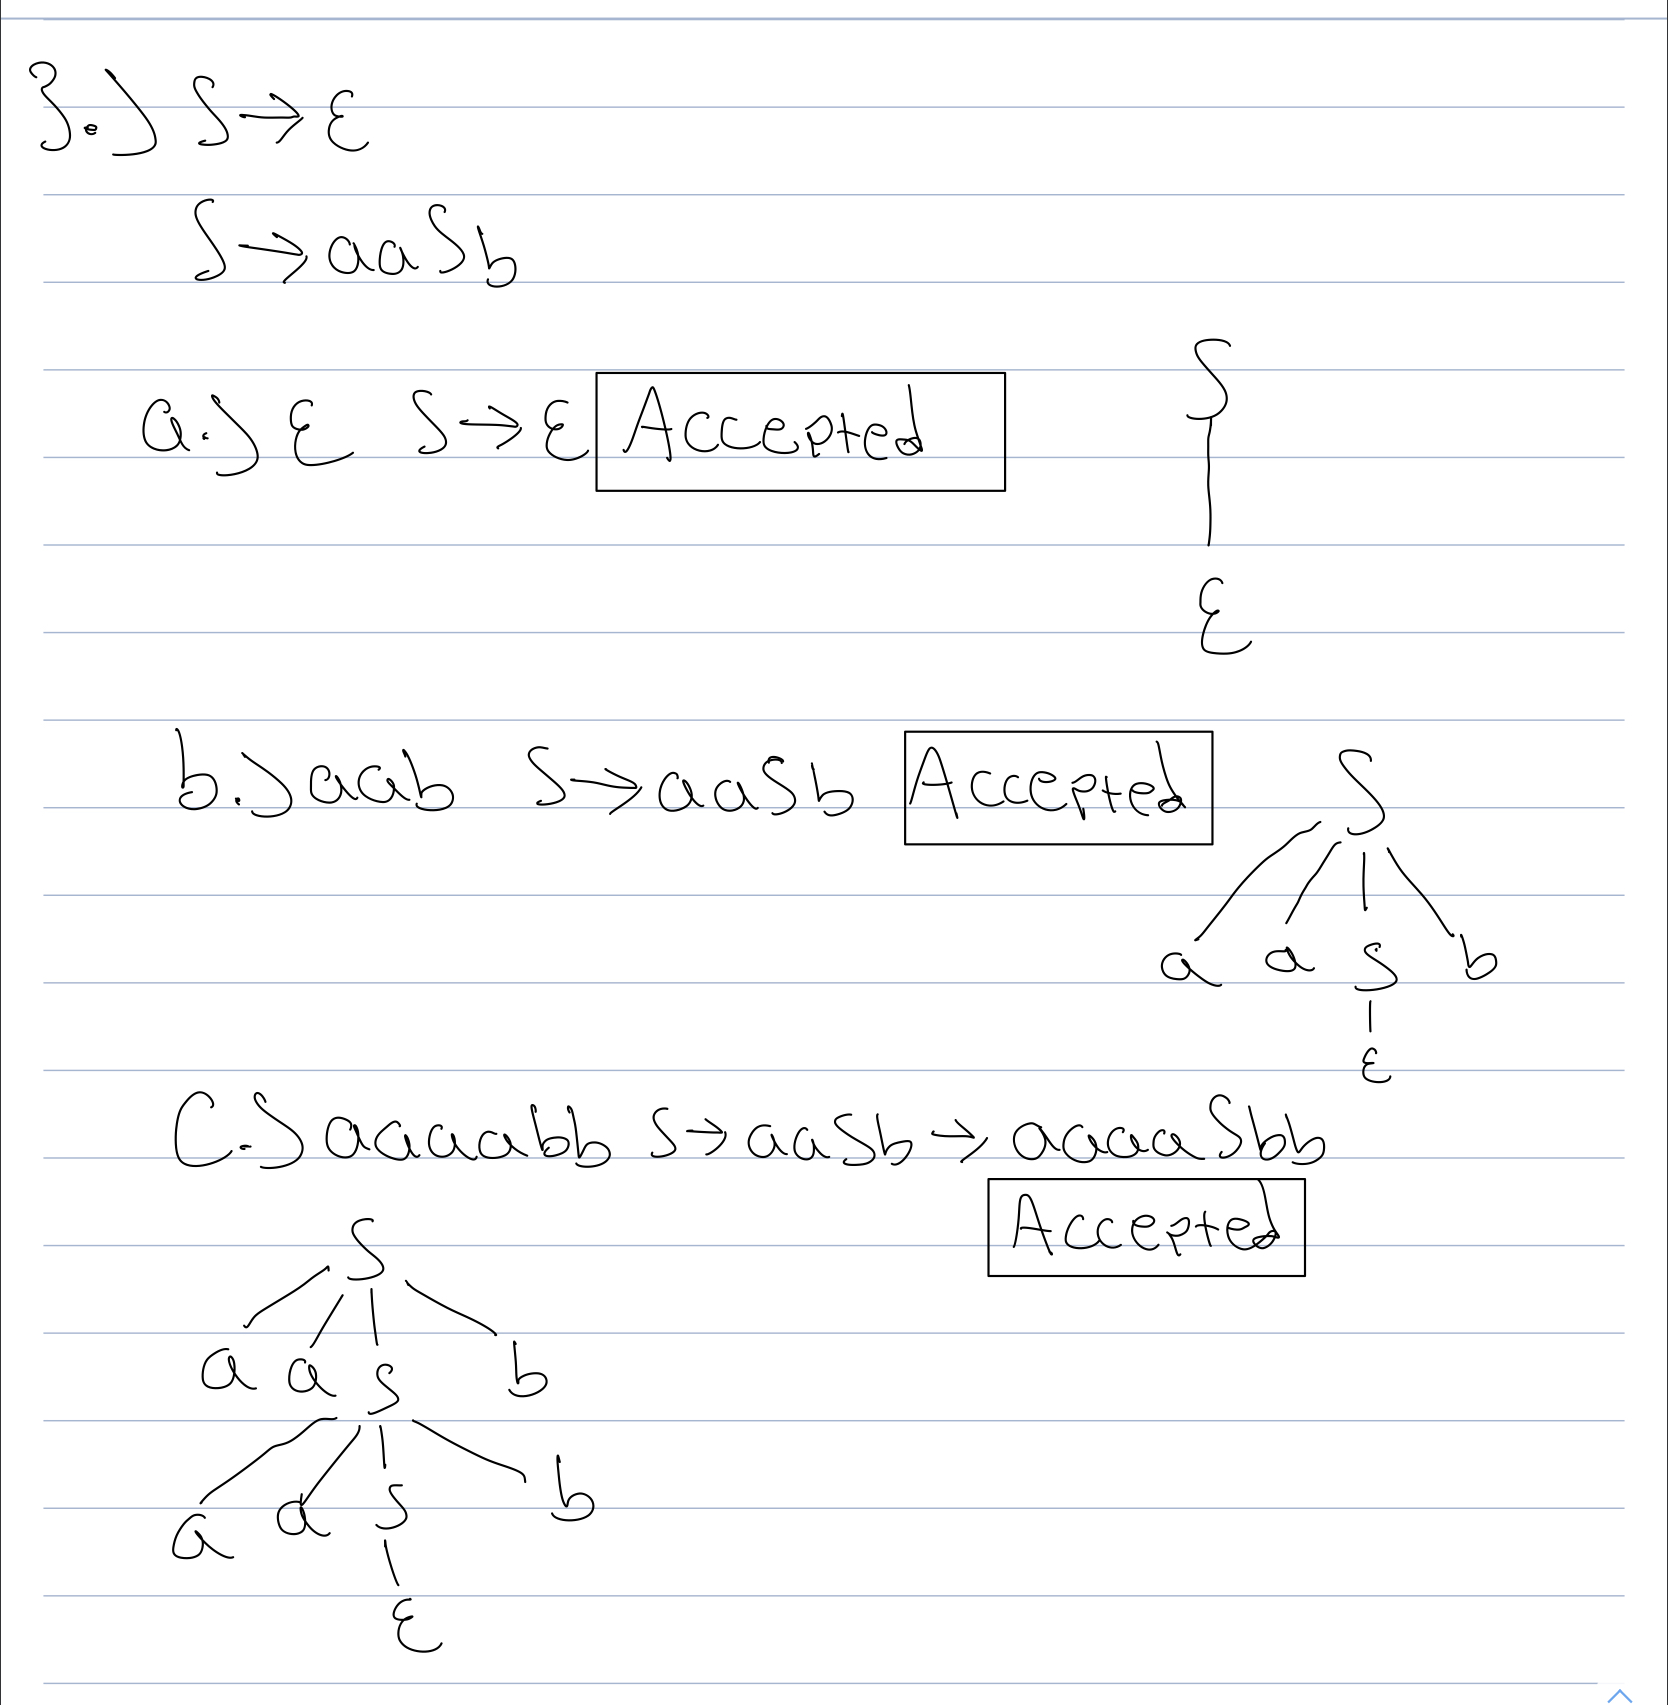 3.) S→ε
S→aaSb
a.) ε S→ε Accepted
S
ε
b.) aab S→aaSb Accepted
S
a a S b
ε
C.) aaaabb S→aaSb→aaaaSbb
Accepted
S
a a S b
a a S b
ε